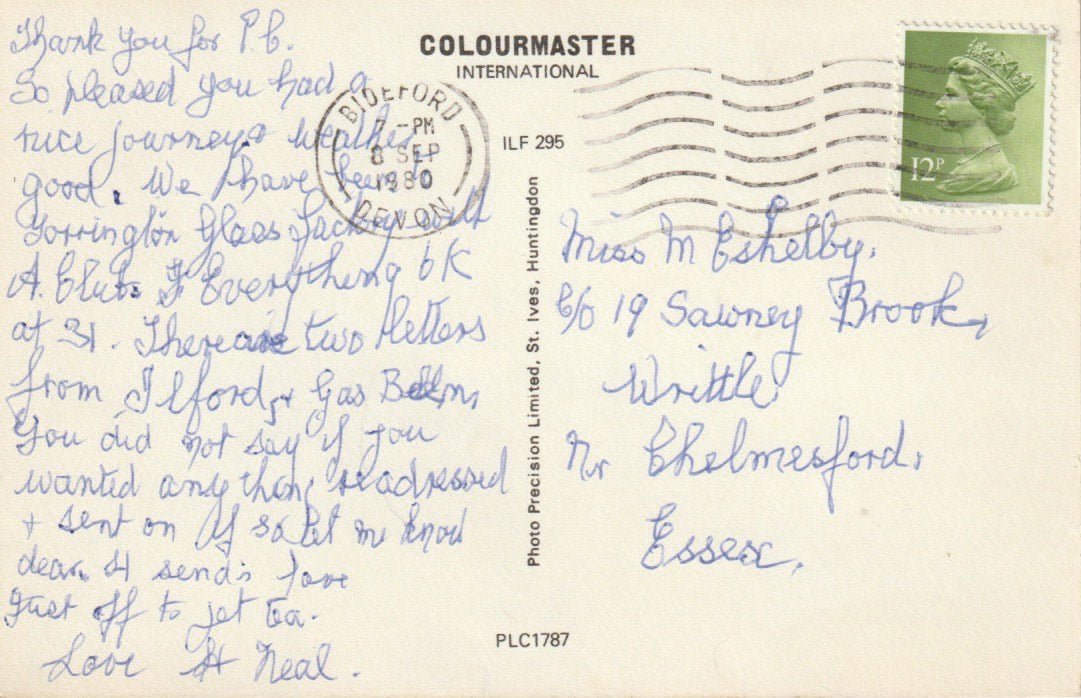 Thank you for P.C.
So pleased you had a
nice journey & weather
good. We have been
Torrington Glass Factory with
A. Club. Everything OK
at 31. There are two letters
from Ilford, & Gas
You did not say if you
wanted anything readressed
& sent on If so let me know
dear. H sends love
Just off to get tea.
Love H Neal.
COLOURMASTER
INTERNATIONAL
BIDEFORD
7 - PM
8 SEP
1980
DEVON
ILF 295
12P
Photo Precision Limited, St. Ives, Huntingdon
Miss M Eshelby,
C/o 19 Sawney Brook,
Writtle
Nr Chelmesford,
Essex.
PLC1787